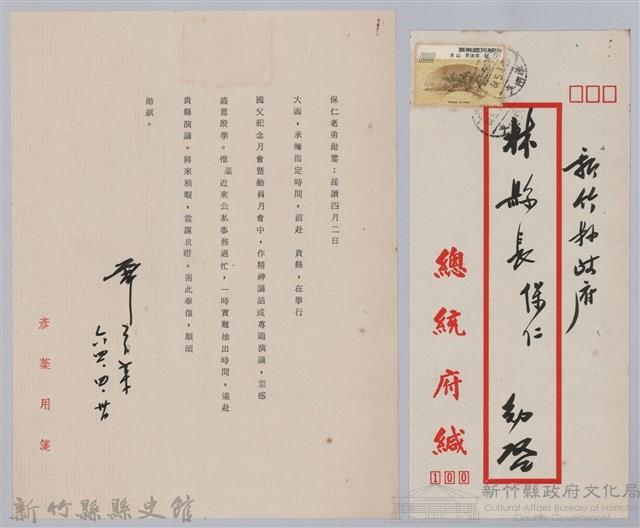 保仁老弟勛鑒：接讀四月二日
大函，承囑指定時間，前赴　貴縣，在舉行
國父紀念月會暨動員月會中，作精神講話或專題演講，至感
盛意殷拳。惟棻近來公私事務過忙，一時實難抽出時間，遠赴
貴縣演講。將來稍暇，當謀良晤。耑此奉復，順頌
勛祺。
六四、四、廿
彥棻用箋
新竹縣政府
林縣長保仁　勛啓
總統府緘
100
新竹縣縣史館
新竹縣政府文化局
Cultural Affairs Bureau of Hsinchu
County Government